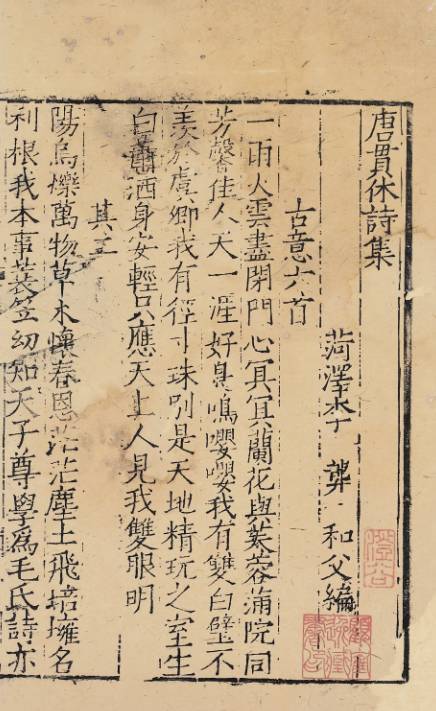 唐貫休詩集
菏澤李龏和父編
古意六首
一雨火雲盡閉門心冥冥蘭花與芙蓉滿院同
芳馨佳人天一涯好鳥鳴嚶嚶我有雙白璧不
羨於虞卿我有徑寸珠別是天地精玩之室生
白瀟洒身安輕只應天上人見我雙眼明
其二
陽烏爍萬物草木懷春恩茫茫塵土飛培擁名
利根我本事蓑笠幼知天子尊學爲毛氏詩亦
澄谷